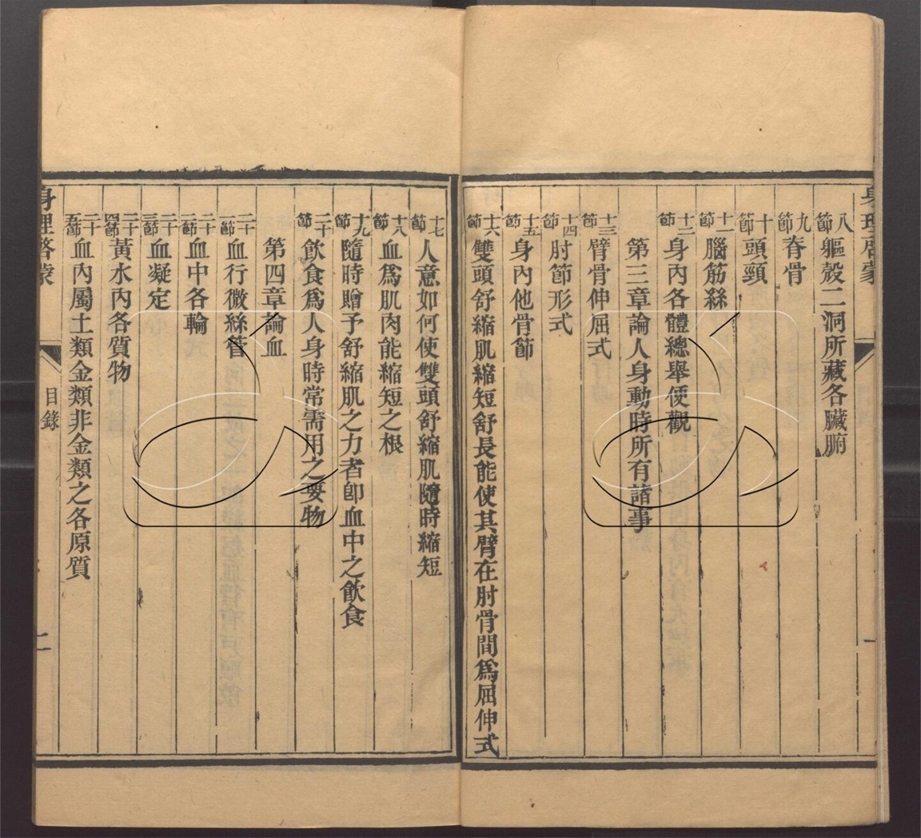 身理啓蒙
八節 軀殼二洞所藏各臟腑
九節 脊骨
十節 頭頸
十一節 腦筋絲
十二節 身內各體總舉便觀
第三章論人身動時所有諸事
十三節 臂骨伸屈式
十四節 肘節形式
十五節 身內他骨節
十六節 雙頭舒縮肌縮短舒長能使其臂在肘骨間爲屈伸式
十七節 人意如何使雙頭舒縮肌隨時縮短
十八節 血爲肌肉能縮短之根
十九節 隨時贈予舒縮肌之力者卽血中之飲食
二十節 飲食爲人身時常需用之要物
第四章論血
二十一節 血行微絲管
二十二節 血中各輪
二十三節 血凝定
二十四節 黃水內各質物
二十五節 血內屬土類金類非金類之各原質
身理啓蒙
目錄
二